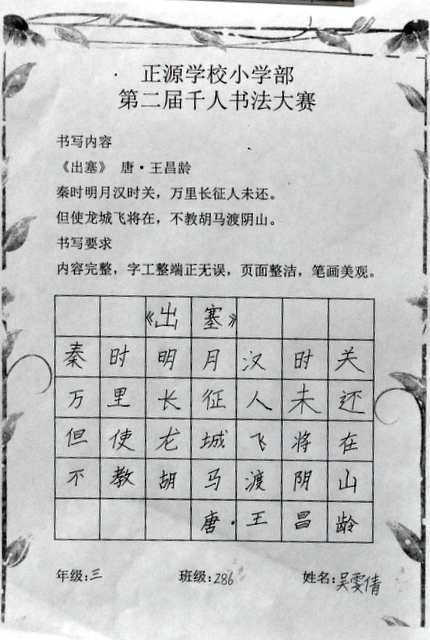 正源学校小学部
第二届千人书法大赛
书写内容
《出塞》 唐·王昌龄
秦时明月汉时关，万里长征人未还。
但使龙城飞将在，不教胡马渡阴山。
书写要求
内容完整，字工整端正无误，页面整洁，笔画美观。
《出塞》
秦时明月汉时关
万里长征人未还
但使龙城飞将在
不教胡马渡阴山
唐·王昌龄
年级:三 班级:286 姓名:吴雯倩